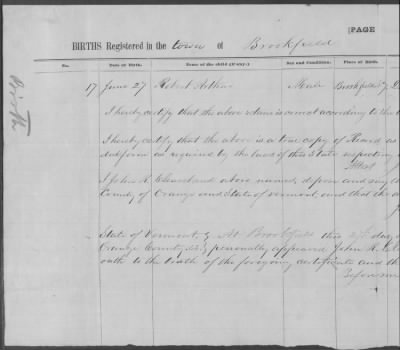 [PAGE
BIRTHS Registered in the town of Brookfield
No. Date of Birth. Name of the child (if any.) Sex and Condition. Place of Birth.
17 June 27 Robert Arthur Male Brookfield
Birth
I hereby certify that the above return is correct according to the
I hereby certify that the above is a true copy of Record as
and form as required by the laws of this State respecting
Attest
I John K. Cleaveland above named, depose and say
County of Orange and State of Vermont, and that the
State of Vermont, At Brookfield this 27th day
Orange County, ss. personally appeared John K.
oath to the truth of the foregoing certificate and
Before me